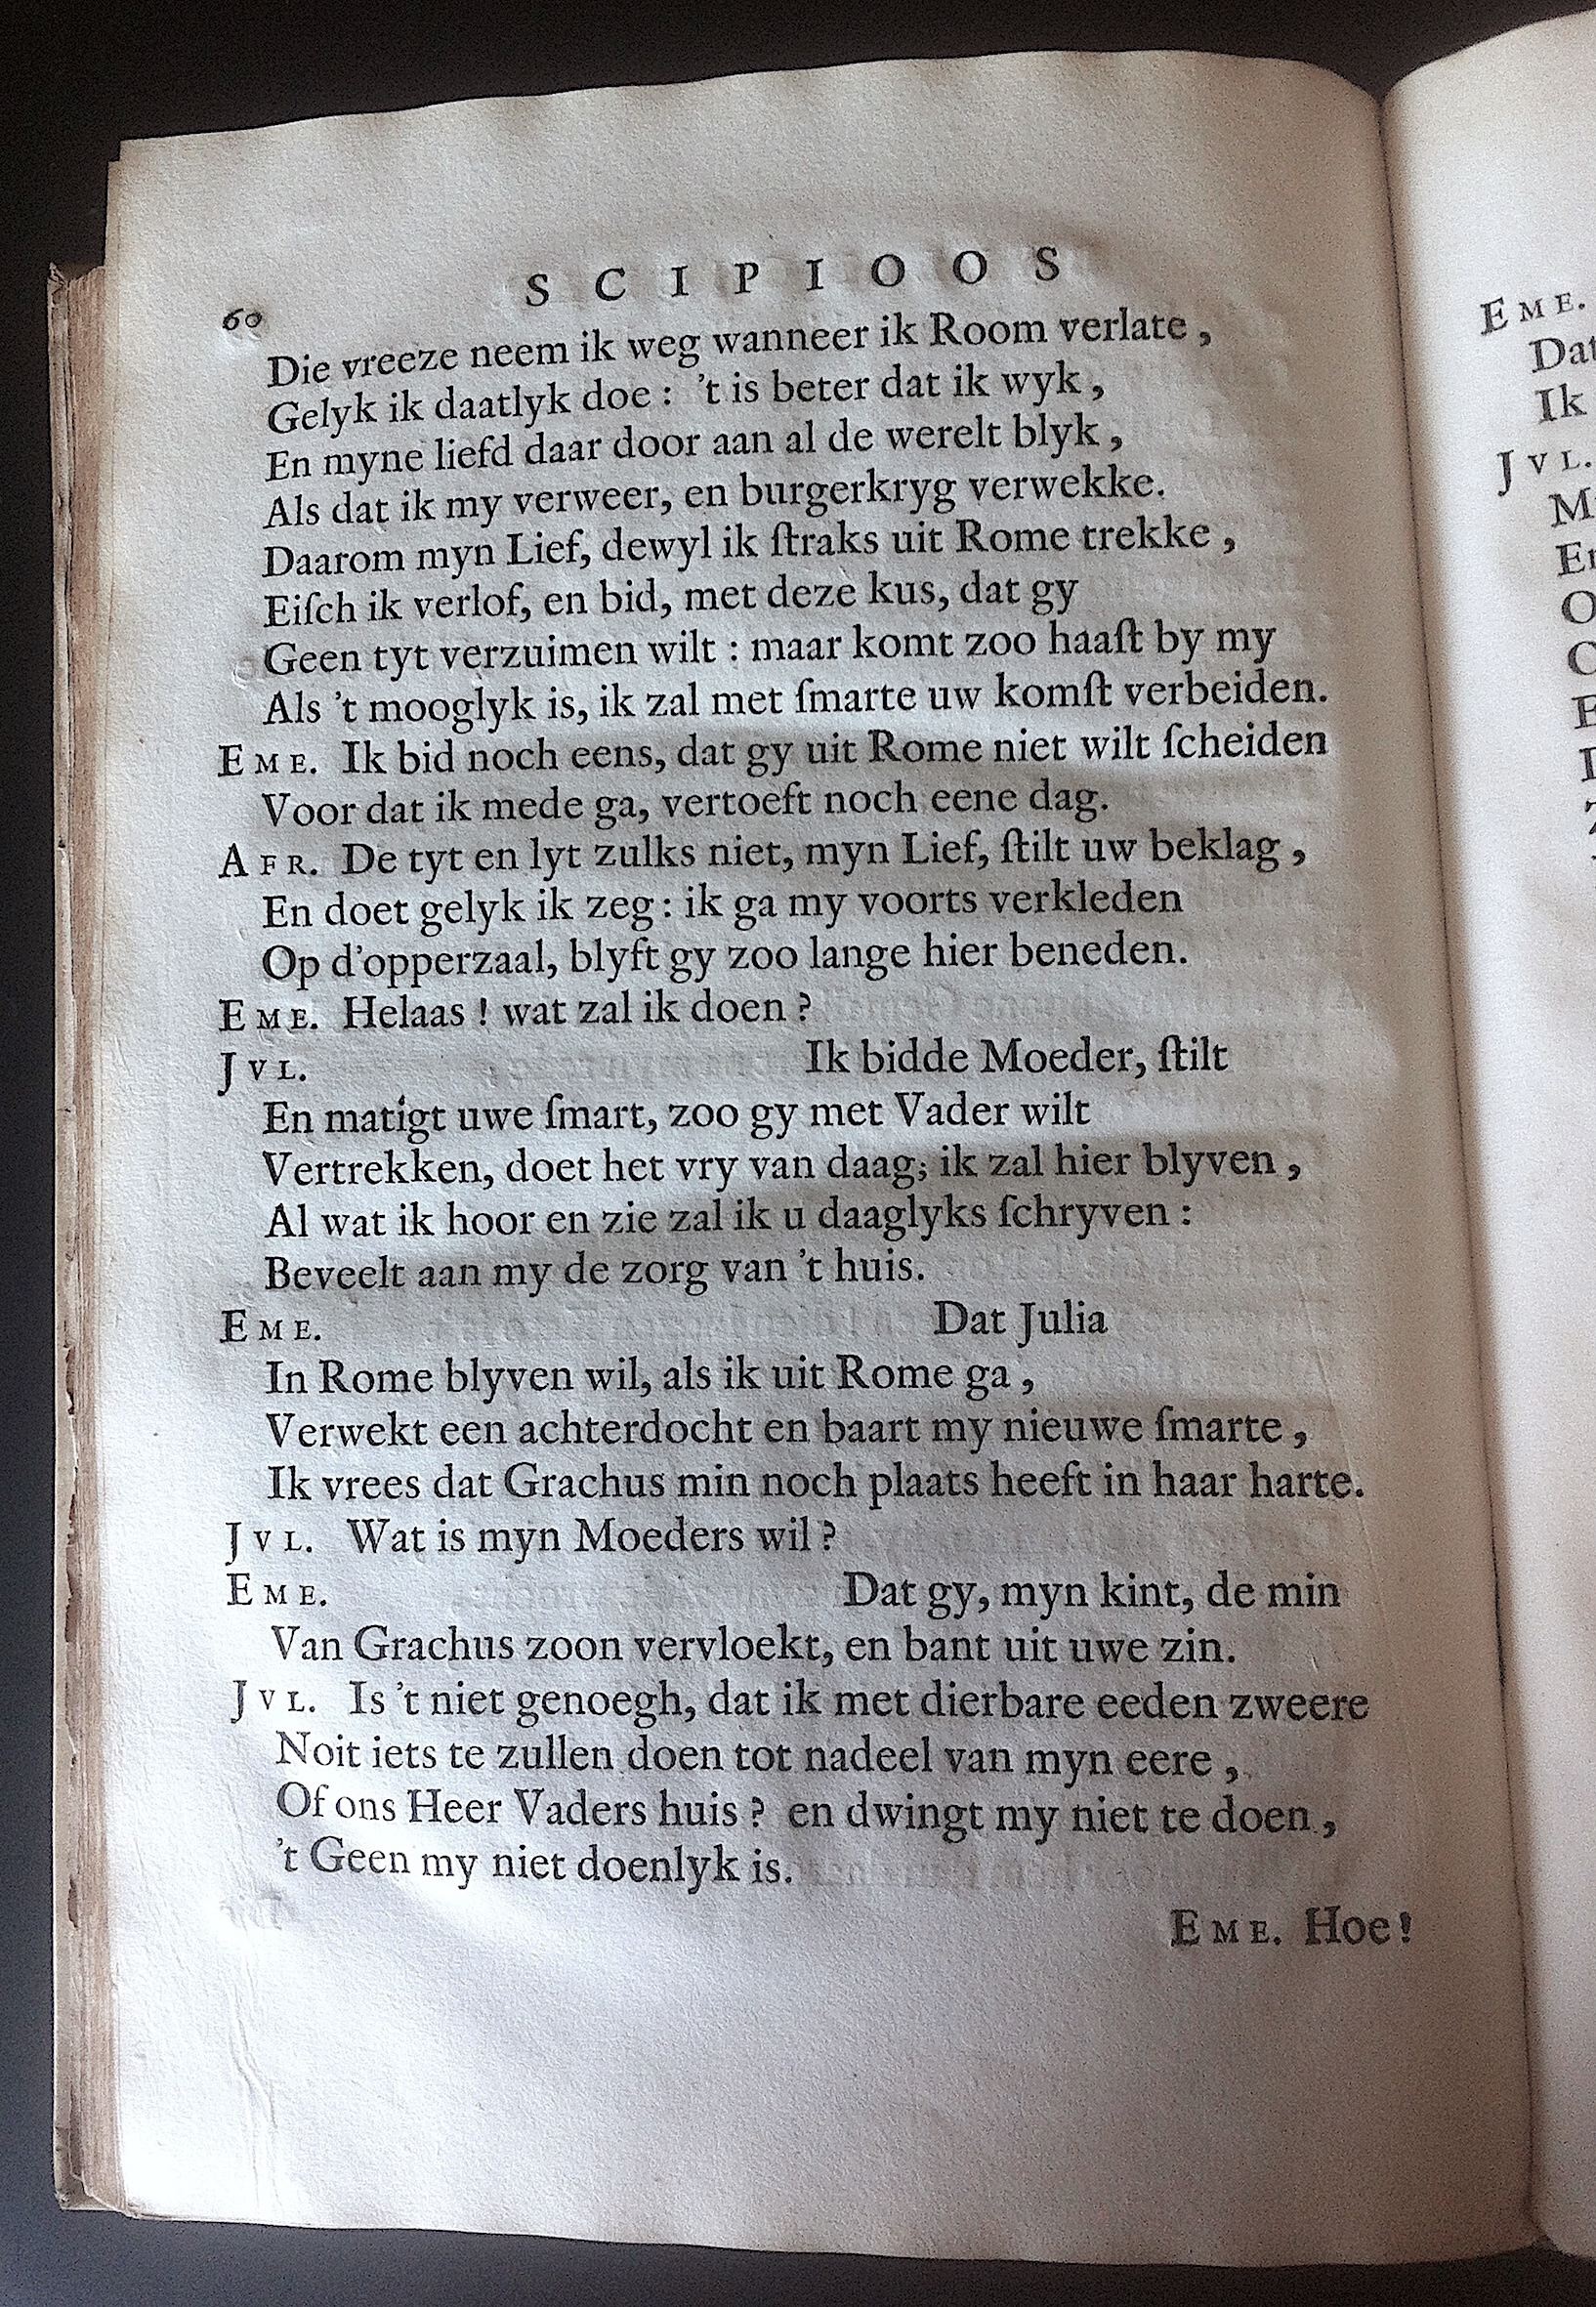 SCIPIOOS
60
Die vreeze neem ik weg wanneer ik Room verlate,
Gelyk ik daatlyk doe: 't is beter dat ik wyk,
En myne liefd daar door aan al de werelt blyk,
Als dat ik my verweer, en burgerkryg verwekke.
Daarom myn Lief, dewyl ik ſtraks uit Rome trekke,
Eiſch ik verlof, en bid, met deze kus, dat gy
Geen tyt verzuimen wilt: maar komt zoo haaſt by my
Als 't mooglyk is, ik zal met ſmarte uw komſt verbeiden.
EME. Ik bid noch eens, dat gy uit Rome niet wilt ſcheiden
Voor dat ik mede ga, vertoeft noch eene dag.
AFR. De tyt en lyt zulks niet, myn Lief, ſtilt uw beklag,
En doet gelyk ik zeg: ik ga my voorts verkleden
Op d'opperzaal, blyft gy zoo lange hier beneden.
EME. Helaas! wat zal ik doen?
JVL. Ik bidde Moeder, ſtilt
En matigt uwe ſmart, zoo gy met Vader wilt
Vertrekken, doet het vry van daag; ik zal hier blyven,
Al wat ik hoor en zie zal ik u daaglyks ſchryven:
Beveelt aan my de zorg van 't huis.
EME. Dat Julia
In Rome blyven wil, als ik uit Rome ga,
Verwekt een achterdocht en baart my nieuwe ſmarte,
Ik vrees dat Grachus min noch plaats heeft in haar harte.
JVL. Wat is myn Moeders wil?
EME. Dat gy, myn kint, de min
Van Grachus zoon vervloekt, en bant uit uwe zin.
JVL. Is 't niet genoegh, dat ik met dierbare eeden zweere
Noit iets te zullen doen tot nadeel van myn eere,
Of ons Heer Vaders huis? en dwingt my niet te doen,
't Geen my niet doenlyk is.
EME. Hoe!
EME.
Dat
Ik
JVL.